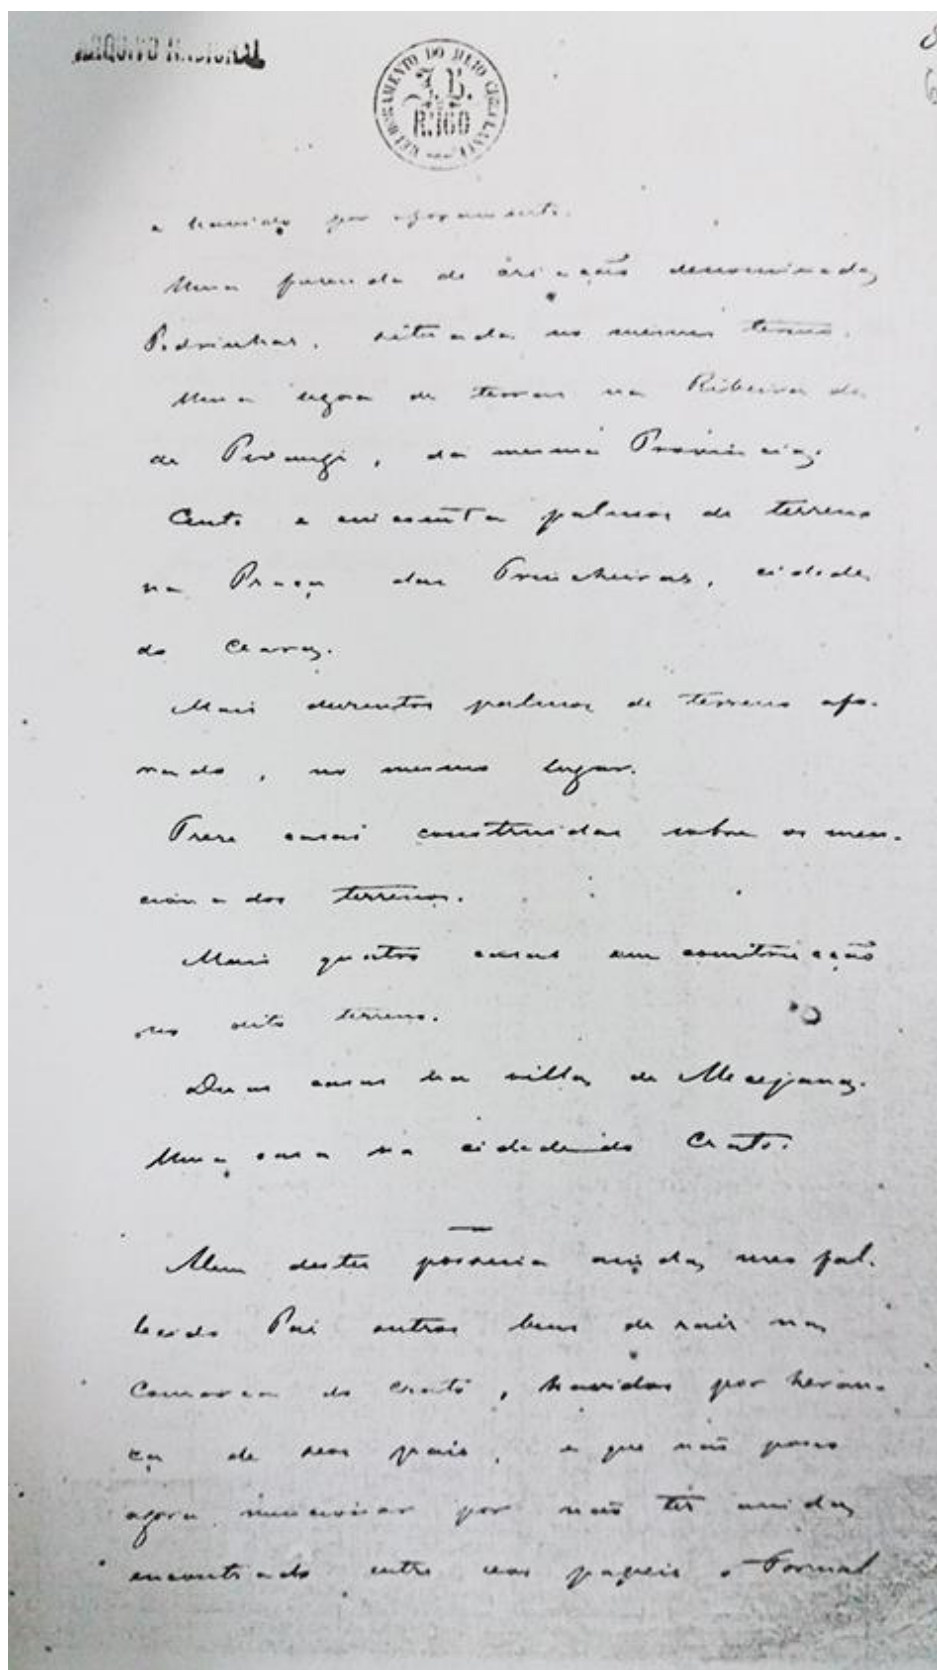 ARQUIVO NACIONAL
MELHORAMENTO DO MEIO CIRCULANTE
R. 160
8
6
e havido por aforamento.
Uma fazenda de criação denominada
Pedrinhas, situada no mesmo termo.
Uma legoa de terras na Ribeira de
de Pirangi, da mesma Provincia.
Cento e cincoenta palmos de terreno
na Praça das Trincheiras, cidade
do Ceará.
Mais duzentos palmos de terreno afo-
rado, no mesmo lugar.
Treze casas construidas sobre os men-
cionados terrenos.
Mais quatro casas em construcção
no dito terreno.
Duas casas na villa de Mecejana.
Uma casa na cidade do Crato.
Alem destes possuia ainda meo fal-
lecido Pai outros bens de raiz na
Comarca do Crato, havidos por heran-
ça de seos pais, e que não posso
agora mencionar por não ter ainda
encontrado entre seos papeis o Formal